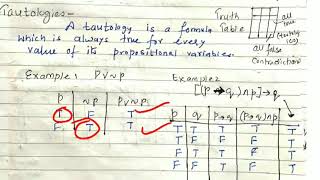 Tautologies-
A tautology is a formula
which is always true for every
value of its propositional variables.
Truth
Table
all
true
all false
Contradiction
Example: P∨~P
Example 2
[(p→q)∧p]→q
P ~P P∨~P
T F T
F T T
p q p→q (p→q)∧p
T T T T T
T F F F T
F T T F T
F F T F T